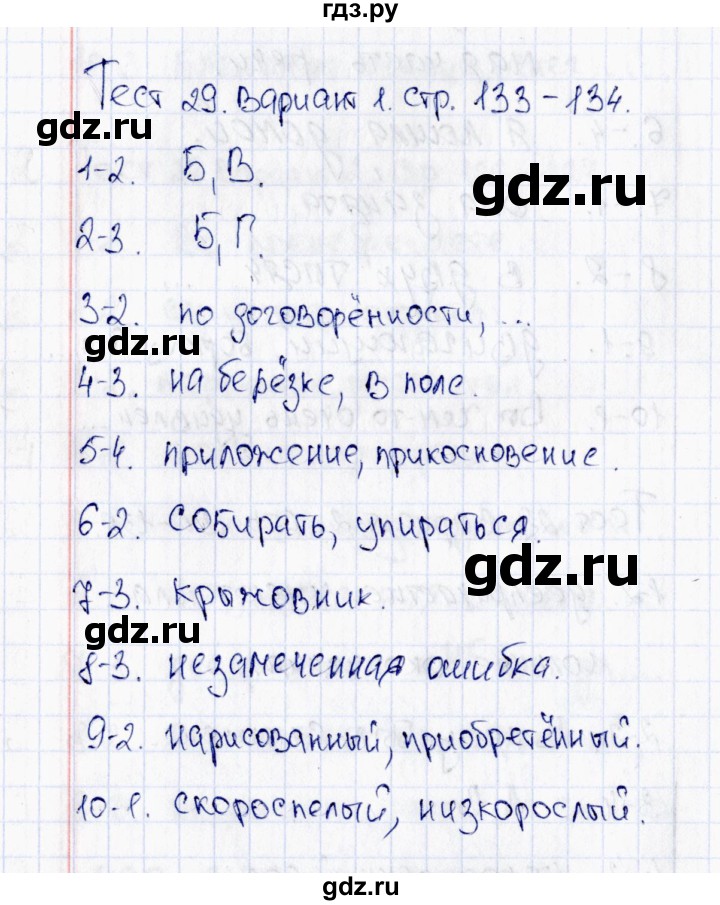 гдз.ру
Тест 29. Вариант 1. стр. 133-134.
gdz.ru
1-2. Б, В.
gdz.ru
2-3. Б, Г.
3-2. по договорённости, ...
gdz.ru
4-3. на берёзке, в поле.
5-4. приложение, прикосновение.
6-2. собирать, упираться.
gdz.ru
7-3. крыжовник.
gdz.ru
8-3. незамеченная ошибка.
9-2. нарисованный, приобретённый.
10-1. скороспелый, низкорослый.
gdz.ru